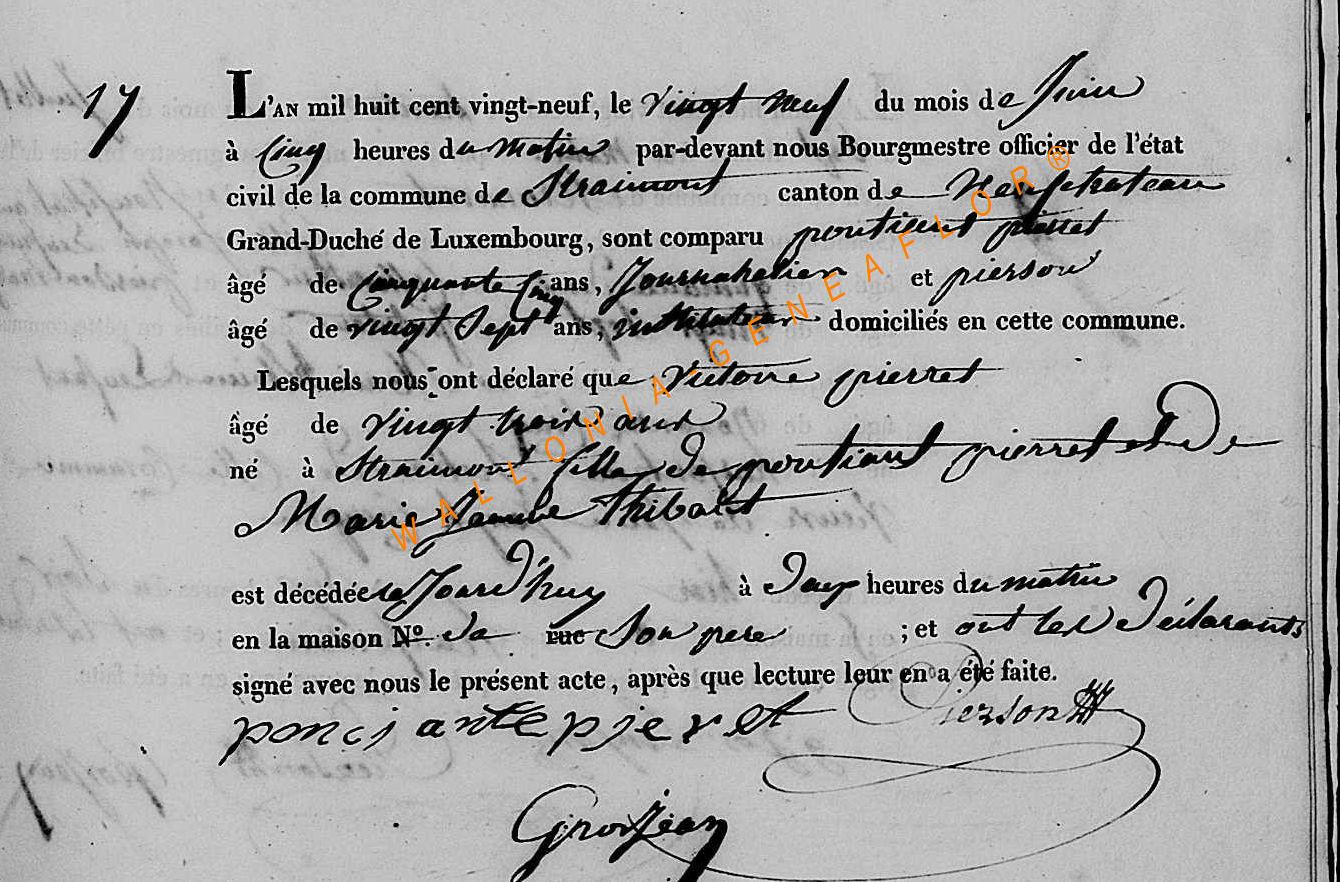 17
L'AN mil huit cent vingt-neuf, le vingt neuf du mois de Juin
à Cinq heures du matin par-devant nous Bourgmestre officier de l'état
civil de la commune de Straimont canton de Neufchateau
Grand-Duché de Luxembourg, sont comparu pontient pierret
âgé de Cinquante Cinq ans, Journahelier et pierson
âgé de vingt Sept ans, instituteur domiciliés en cette commune.
Lesquels nous ont déclaré que Victoire pierret
âgé de vingt trois ans
né à Straimont fille de pontiant pierret et De
Marie Jeanne Thibault
est décédée Jourd'huy à Deux heures du matin
en la maison No. de rue Son pere ; et ont les Déclarants
signé avec nous le présent acte, après que lecture leur en a été faite.
poncjante pjeret Pierson
Grosjean
WALLONIA-GENEAFLOR®